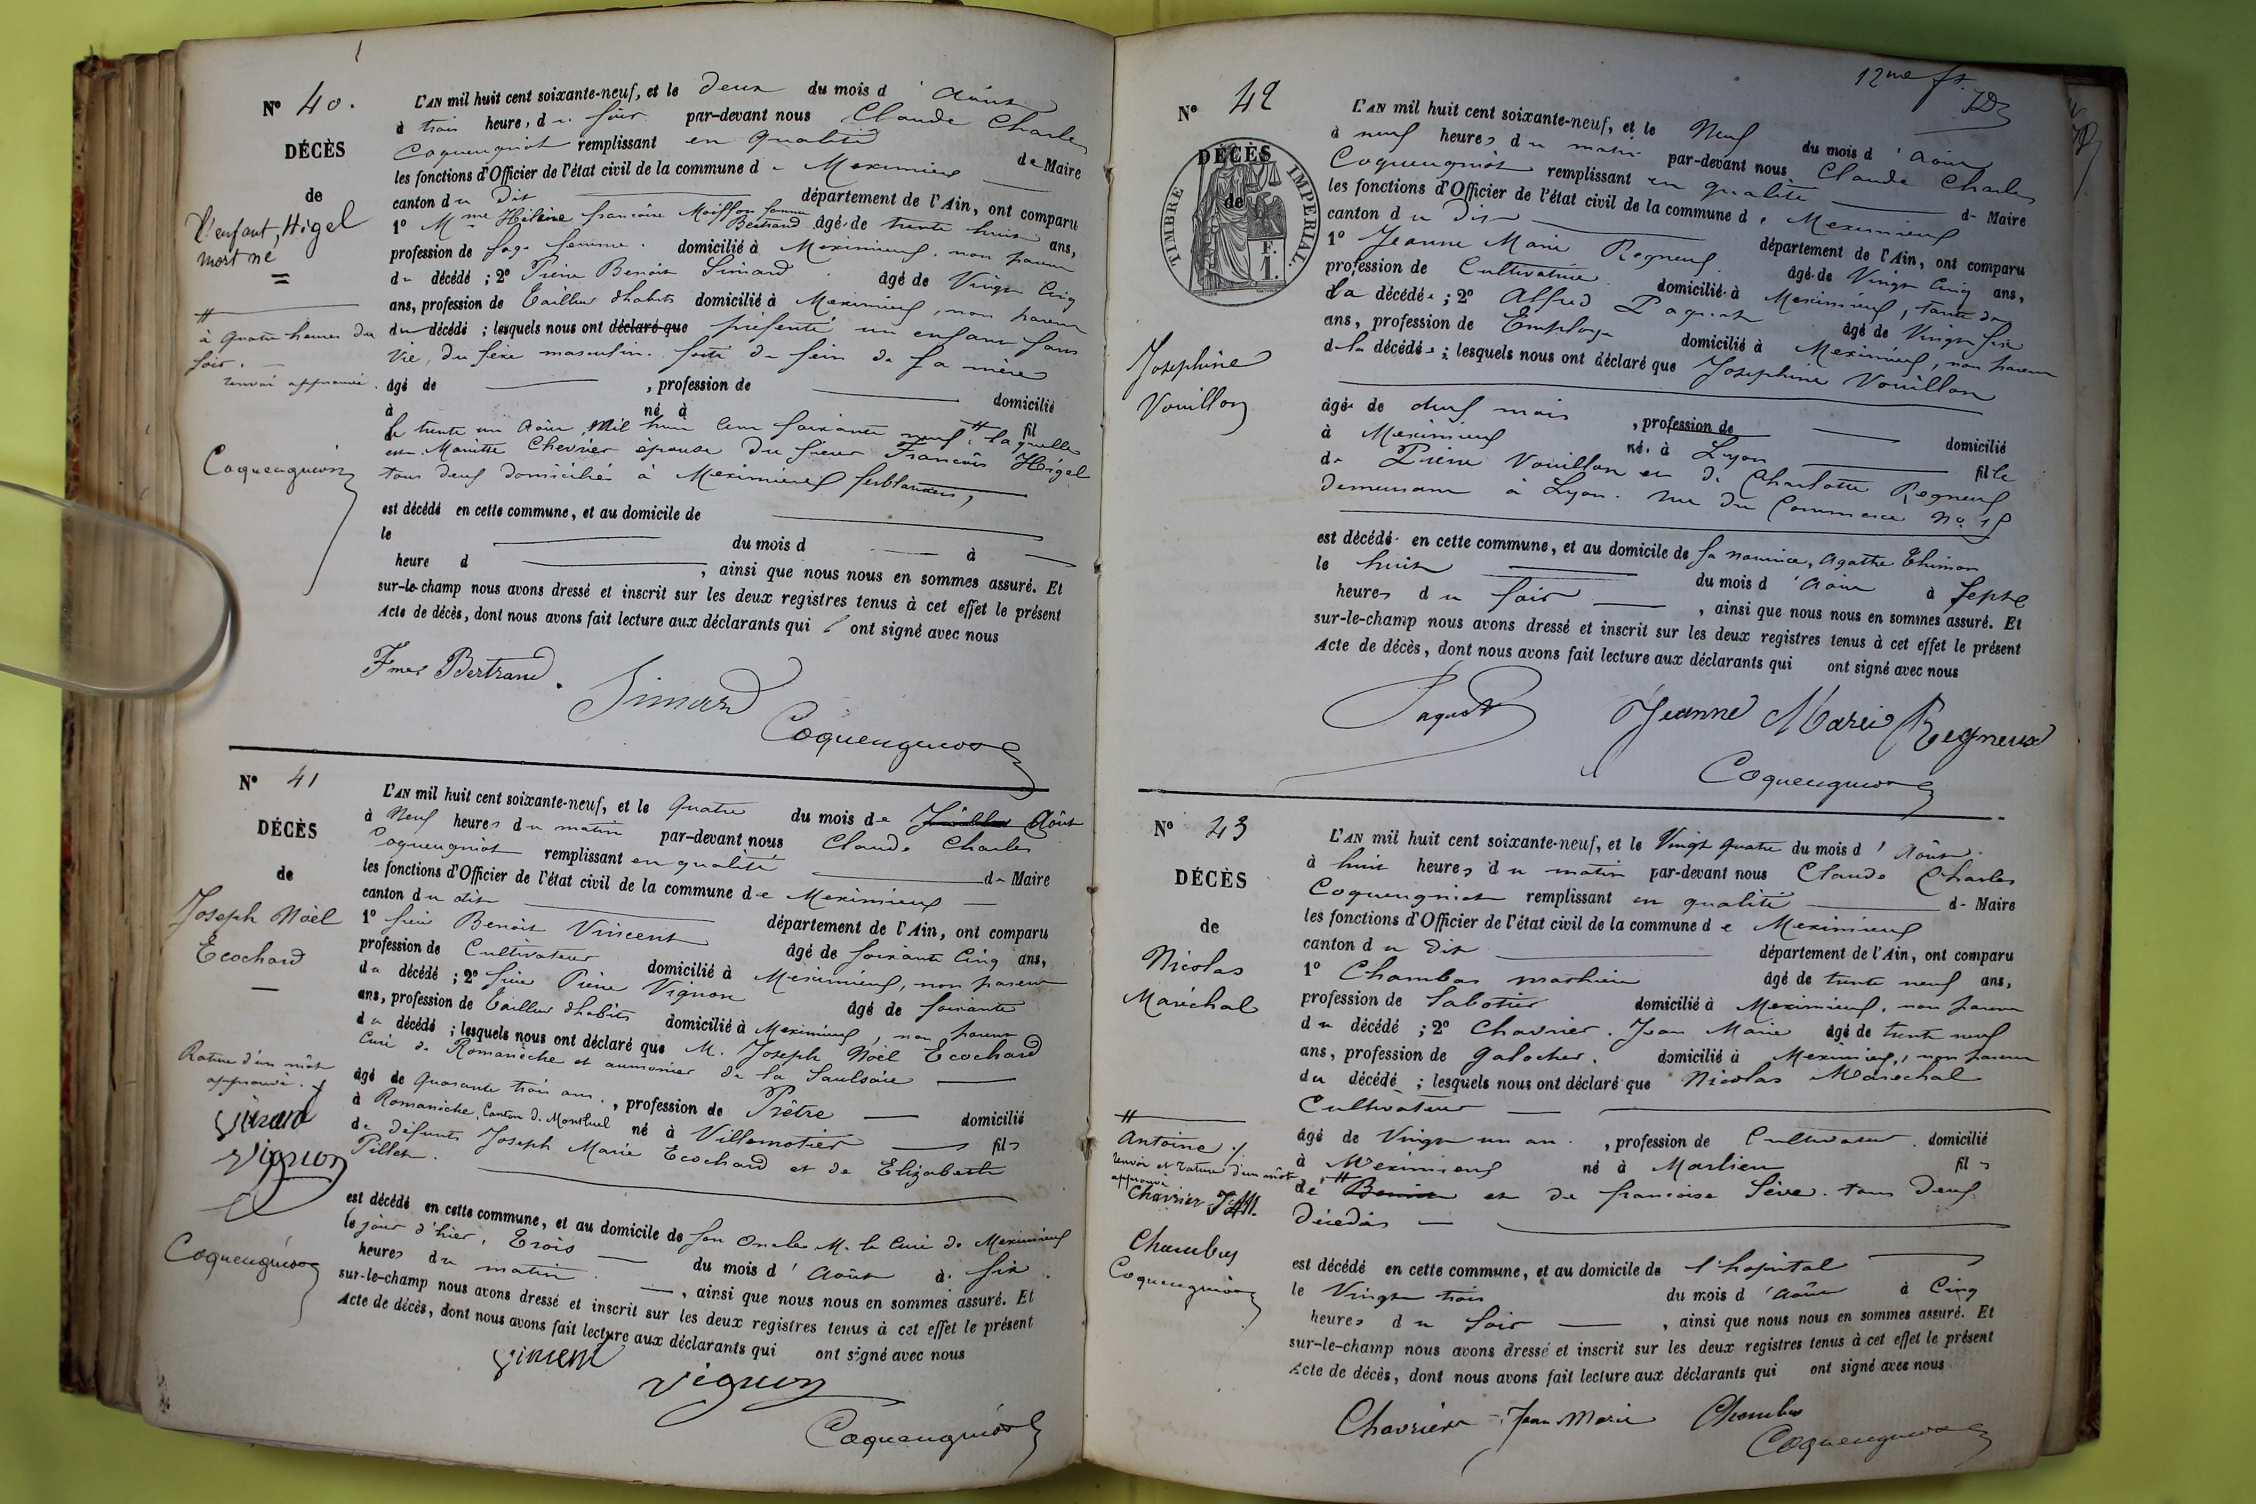 N° 40.
DÉCÈS
de
L'enfant, Higel
mort né
à quatre heures du
soir.
renvoi approuvé.
Coquengniot
L'AN mil huit cent soixante-neuf, et le deux du mois d' Août
à trois heure, du soir par-devant nous Claude Charles
Coquengniot remplissant en qualité de Maire
les fonctions d'Officier de l'état civil de la commune de Meximieux
canton du dit département de l'Ain, ont comparu
1° Mme Hélène françoise Moiffon femme Bertrand âgé de trente huit ans,
profession de sage femme. domicilié à Meximieux, non parent
du décédé ; 2° Pierre Benoit Simard âgé de Vingt Cinq
ans, profession de tailleur d'habits domicilié à Meximieux, non parent
du décédé ; lesquels nous ont déclaré que présenté un enfant sans
vie, du sexe masculin. sorti du sein de sa mère
âgé de , profession de domicilié
à né à fil
le trente un Août Mil huit cent soixante neuf, laquelle
est Mariette Chevrier épouse du sieur François Higel
tous deux domiciliés à Meximieux ferblantiers,
est décédé en cette commune, et au domicile de
le du mois d à
heure d , ainsi que nous nous en sommes assuré. Et
sur-le-champ nous avons dressé et inscrit sur les deux registres tenus à cet effet le présent
Acte de décès, dont nous avons fait lecture aux déclarants qui ont signé avec nous
Fme Bertrand.
Simard
Coquengniot
N° 41
DÉCÈS
de
Joseph Noël
Ecochard
Rature d'un mot
approuvé.
Vincent
Vignon
Coquengniot
L'AN mil huit cent soixante-neuf, et le quatre du mois de Juillet Août
à Neuf heures du matin par-devant nous Claude Charles
Coquengniot remplissant en qualité de Maire
les fonctions d'Officier de l'état civil de la commune de Meximieux
canton du dit département de l'Ain, ont comparu
1° sieur Benoit Vincent âgé de soixante Cinq ans,
profession de Cultivateur domicilié à Meximieux, non parent
du décédé ; 2° sieur Pierre Vignon âgé de soixante
ans, profession de tailleur d'habits domicilié à Meximieux, non parent
du décédé ; lesquels nous ont déclaré que M. Joseph Noël Ecochard
Curé de Romanèche et aumonier de la Saulsaie
âgé de quarante trois ans. , profession de Prêtre domicilié
à Romanèche, Canton de Montluel né à Villemotier fils
de défunts Joseph Marie Ecochard et de Elizabeth
Pillet.
est décédé en cette commune, et au domicile de son Oncle M. le Curé de Meximieux
le jour d'hier, Trois du mois d' Août à six
heures du matin , ainsi que nous nous en sommes assuré. Et
sur-le-champ nous avons dressé et inscrit sur les deux registres tenus à cet effet le présent
Acte de décès, dont nous avons fait lecture aux déclarants qui ont signé avec nous
Vincent
Vignon
Coquengniot
12me ft.
N° 42
DÉCÈS
de
TIMBRE IMPÉRIAL.
F.
1.
Josephine
Vouillon
L'AN mil huit cent soixante-neuf, et le Neuf du mois d' Août
à neuf heures du matin par-devant nous Claude Charles
Coquengniot remplissant en qualité de Maire
les fonctions d'Officier de l'état civil de la commune de Meximieux
canton du dit département de l'Ain, ont comparu
1° Jeanne Marie Regneux âgé de Vingt Cinq ans,
profession de Cultivatrice domicilié à Meximieux, tante de
la décédée ; 2° Alfred Paquet âgé de Vingt six
ans, profession de Employé domicilié à Meximieux, non parent
de la décédée ; lesquels nous ont déclaré que Josephine Vouillon
âgé de deux mois , profession de domicilié
à Meximieux née à Lyon fille
de Pierre Vouillon et de Charlotte Regneux
demeurant à Lyon. rue du Commerce No 15
est décédée en cette commune, et au domicile de sa nourrice, Agathe Thimon
le huit du mois d' Août à Sept
heures du soir , ainsi que nous nous en sommes assuré. Et
sur-le-champ nous avons dressé et inscrit sur les deux registres tenus à cet effet le présent
Acte de décès, dont nous avons fait lecture aux déclarants qui ont signé avec nous
Paquet
Jeanne Marie Regneux
Coquengniot
N° 43
DÉCÈS
de
Nicolas
Maréchal
Antoine
renvoi et rature d'un mot
approuvé
Chavrier J M.
Chambas
Coquengniot
L'AN mil huit cent soixante-neuf, et le Vingt quatre du mois d' Août
à huit heures du matin par-devant nous Claude Charles
Coquengniot remplissant en qualité de Maire
les fonctions d'Officier de l'état civil de la commune de Meximieux
canton du dit département de l'Ain, ont comparu
1° Chambas mathieu âgé de trente neuf ans,
profession de Sabotier domicilié à Meximieux, non parent
du décédé ; 2° Chavrier. Jean Marie âgé de trente neuf
ans, profession de galocher. domicilié à Meximieux, non parent
du décédé ; lesquels nous ont déclaré que Nicolas Maréchal
Cultivateur
âgé de Vingt un an. , profession de Cultivateur domicilié
à Meximieux né à Marlieu fils
de Benoit et de françoise Sève. tous deux
décédés
est décédé en cette commune, et au domicile de l'hopital
le Vingt trois du mois d' Août à Cinq
heures du soir , ainsi que nous nous en sommes assuré. Et
sur-le-champ nous avons dressé et inscrit sur les deux registres tenus à cet effet le présent
Acte de décès, dont nous avons fait lecture aux déclarants qui ont signé avec nous
Chavrier Jean Marie
Chambas
Coquengniot